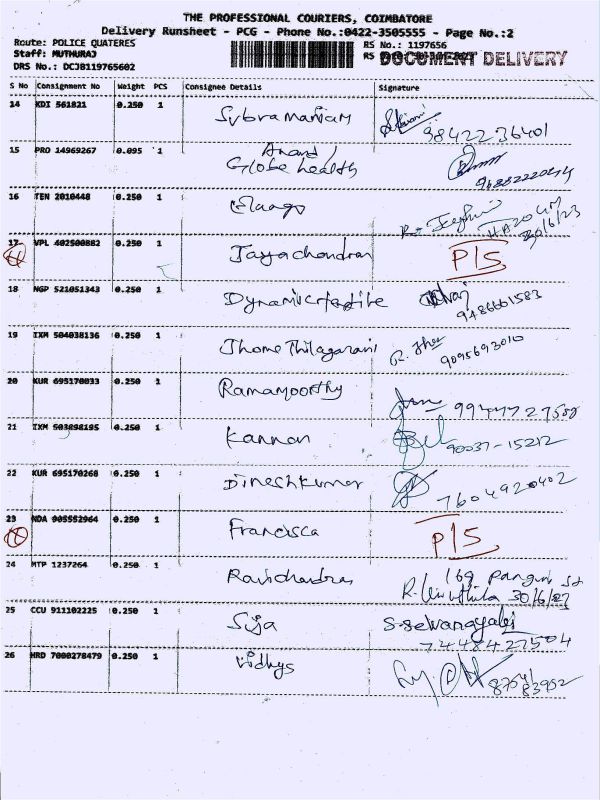 THE PROFESSIONAL COURIERS, COIMBATORE
Delivery Runsheet - PCG - Phone No.:0422-3505555 - Page No.:2
Route: POLICE QUATERES
RS No.: 1197656
Staff: MUTHURAJ
RS
DOCUMENT DELIVERY
DRS No.: DCJB119765602
S No Consignment No Weight PCS Consignee Details Signature
14 KDI 561821 0.250 1 Subramaniam 98422 36401
15 PRO 14969267 0.095 1 Anand /
Globe health
16 TEN 2010448 0.250 1 Elango
30/6/23
17 VPL 402500882 0.250 1 Jayachandran P/S
18 NGP 521051343 0.250 1 Dynamic
9486601583
19 IXM 504038136 0.250 1 Jhome Thilagarani
9095693010
20 KUR 695170033 0.250 1 Ramamoorthy
21 IXM 503898195 0.250 1 Kannan 90037-15212
22 KUR 695170268 0.250 1 Dineshkumar 7604920402
23 NDA 905552964 0.250 1 Francisca P/S
24 MTP 1237264 0.250 1 Ravichandran 169
30/6/23
25 CCU 911102225 0.250 1 Suja
7448427504
26 HRD 7000278479 0.250 1 Vidhys 8754183952